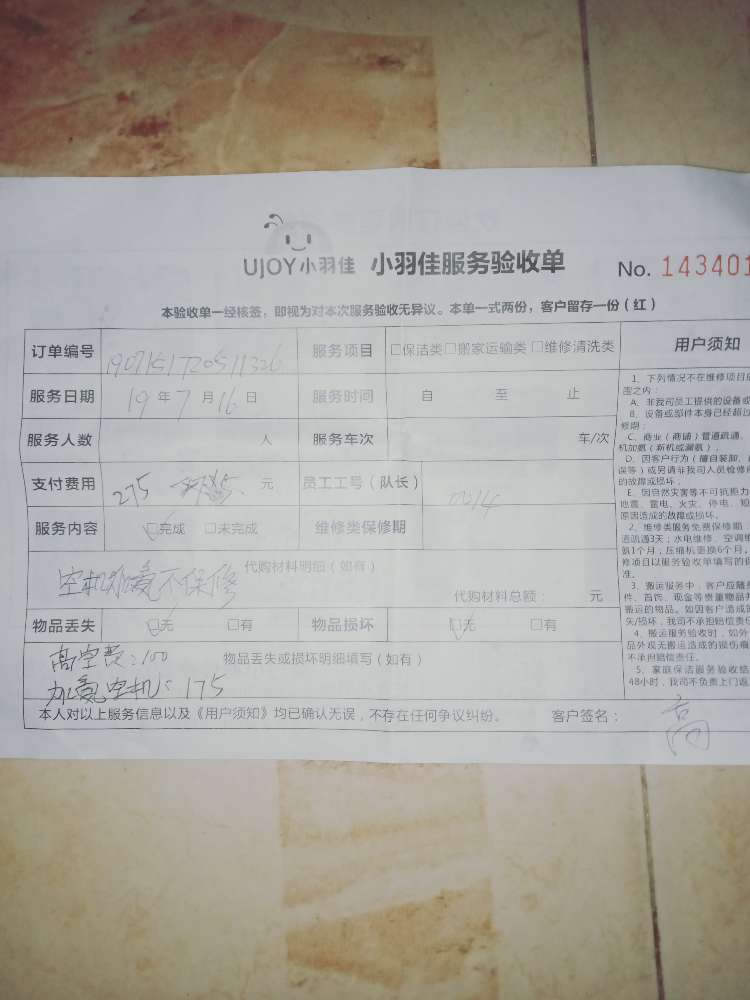 UJOY小羽佳 小羽佳服务验收单 No. 143401
本验收单一经核签，即视为对本次服务验收无异议。本单一式两份，客户留存一份（红）
订单编号 服务项目 □保洁类□搬家运输类 □维修清洗类 用户须知
服务日期 19 年 7 月 16 日 服务时间 自 至 止
服务人数 人 服务车次 车/次
支付费用 275 元 员工工号（队长）
服务内容 □完成 □未完成 维修类保修期
代购材料明细（如有）
空机加氟不保修
代购材料总额： 元
物品丢失 □无 □有 物品损坏 □无 □有
高空费：100 物品丢失或损坏明细填写（如有）
加氟空机：175
本人对以上服务信息以及《用户须知》均已确认无误，不存在任何争议纠纷。 客户签名： 高
1、下列情况不在维修项目
围之内：
A、非我司员工提供的设备或
B、设备或部件本身已经超过
修期；
C、商业（商铺）管道疏通、
机加氨（新机或漏氨）。
D、因客户行为（擅自装卸、
误等）或另请非我司人员检修
的故障或损坏；
E、因自然灾害等不可抗拒力
地震、雷电、火灾、停电、短
原因造成的故障或损坏。
2、维修类服务免费保修期
道疏通3天；水电维修、空调维
氨1个月；压缩机更换6个月。
修项目以服务验收单填写的保
准。
3、搬运服务中，客户应随
件、首饰、现金等贵重物品并
搬运的物品。如因客户造成
失/损坏，我司不承担赔偿责任
4、搬运服务验收时，如外
品外观无搬运造成的损伤痕
不承担赔偿责任。
5、家庭保洁服务验收结
48小时，我司不负责上门返